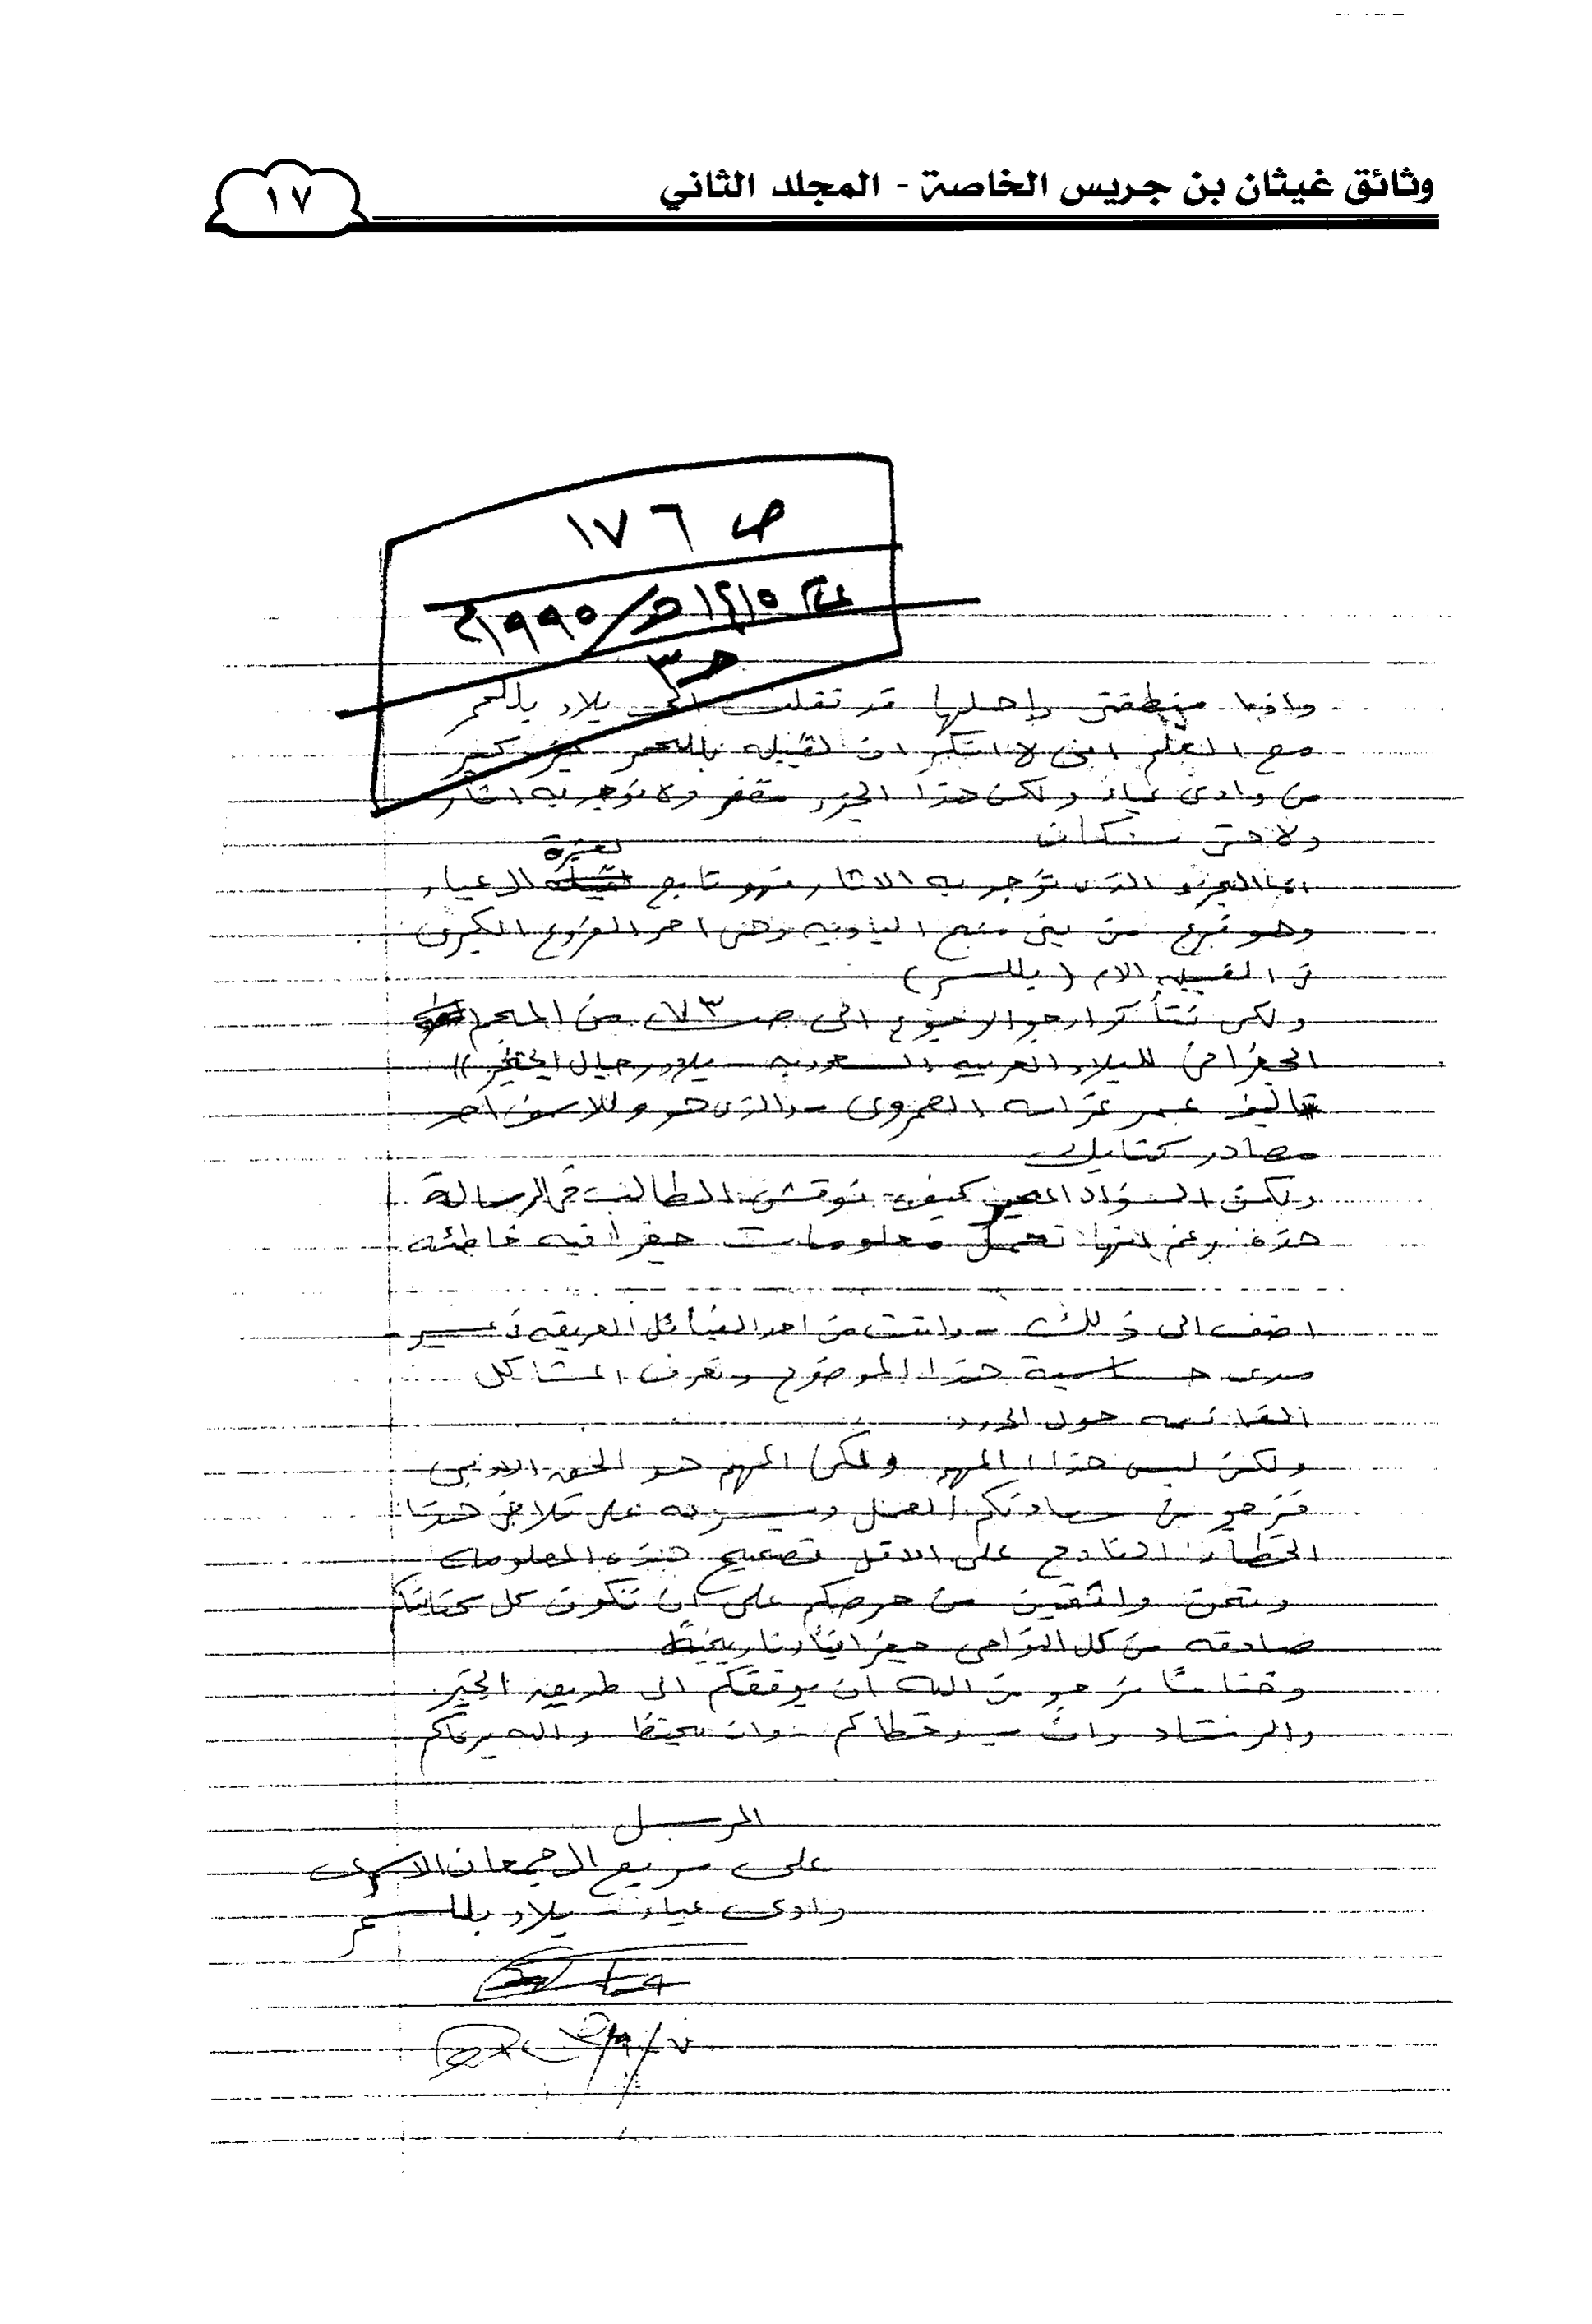 وثائق غيثان بن جريس الخاصة - المجلد الثاني
١٧
ص ١٧٦
عام ١٤١٠هـ/١٩٩٠م
حـ٣
واذا منطقتي واهلها قد نقلت الى بلاد بللحمر
مع العلم انني لا انكر ان لقبيله بللحمر جزء كبير
من وادى عياء ولكن هذا الجزء مقفر ولا توجد به اثار
ولا حتى سكان
اما الجزء الذى توجد به الاثار فهو تابع لعشيرة ال عياء
وهو فرع من بني منبح اليزيديه وهى احد الفروع الكبرى
في القبيله الام (بللسمر)
ولكى تتأكد ارجو الرجوع الى صـ ١٧٣ من المعجم
الجغرافي للبلاد العربيه السعوديه - بلاد رجال الحجر))
تأليف عمر غرامه العمروى - والذى هو وللاسف احد
مصادر كتابك
ولكن السؤال المحير كيف نوقش الطالب في الرسالة
هذه رغم انها تحمل معلومات جغرافيه خاطئه
اضف الى ذلك - وانت من احد القبائل العريقه في عسير
مدى حساسية هذا الموضوع وتعرف المشاكل
القائمه حول الحدود
ولكن ليس هذا المهم ولكن المهم هو الحق الادبي
فنرجو من سعادتكم العمل وبسرعه على تلافي هذا
الخطاء الفادح على الاقل تصحيح هذه المعلومات
ونحن واثقين من حرصكم على ان تكون كل كتاباتكم
صادقه من كل النواحى جغرافيًا وتاريخيًا
وختامًا نرجو من الله ان يوفقكم الى طريق الخير
والرشاد وان يسدد خطاكم والله يرعاكم
المرسل
على سريع ال جمعان الاسمرى
وادى عياء - بلاد بللسمر